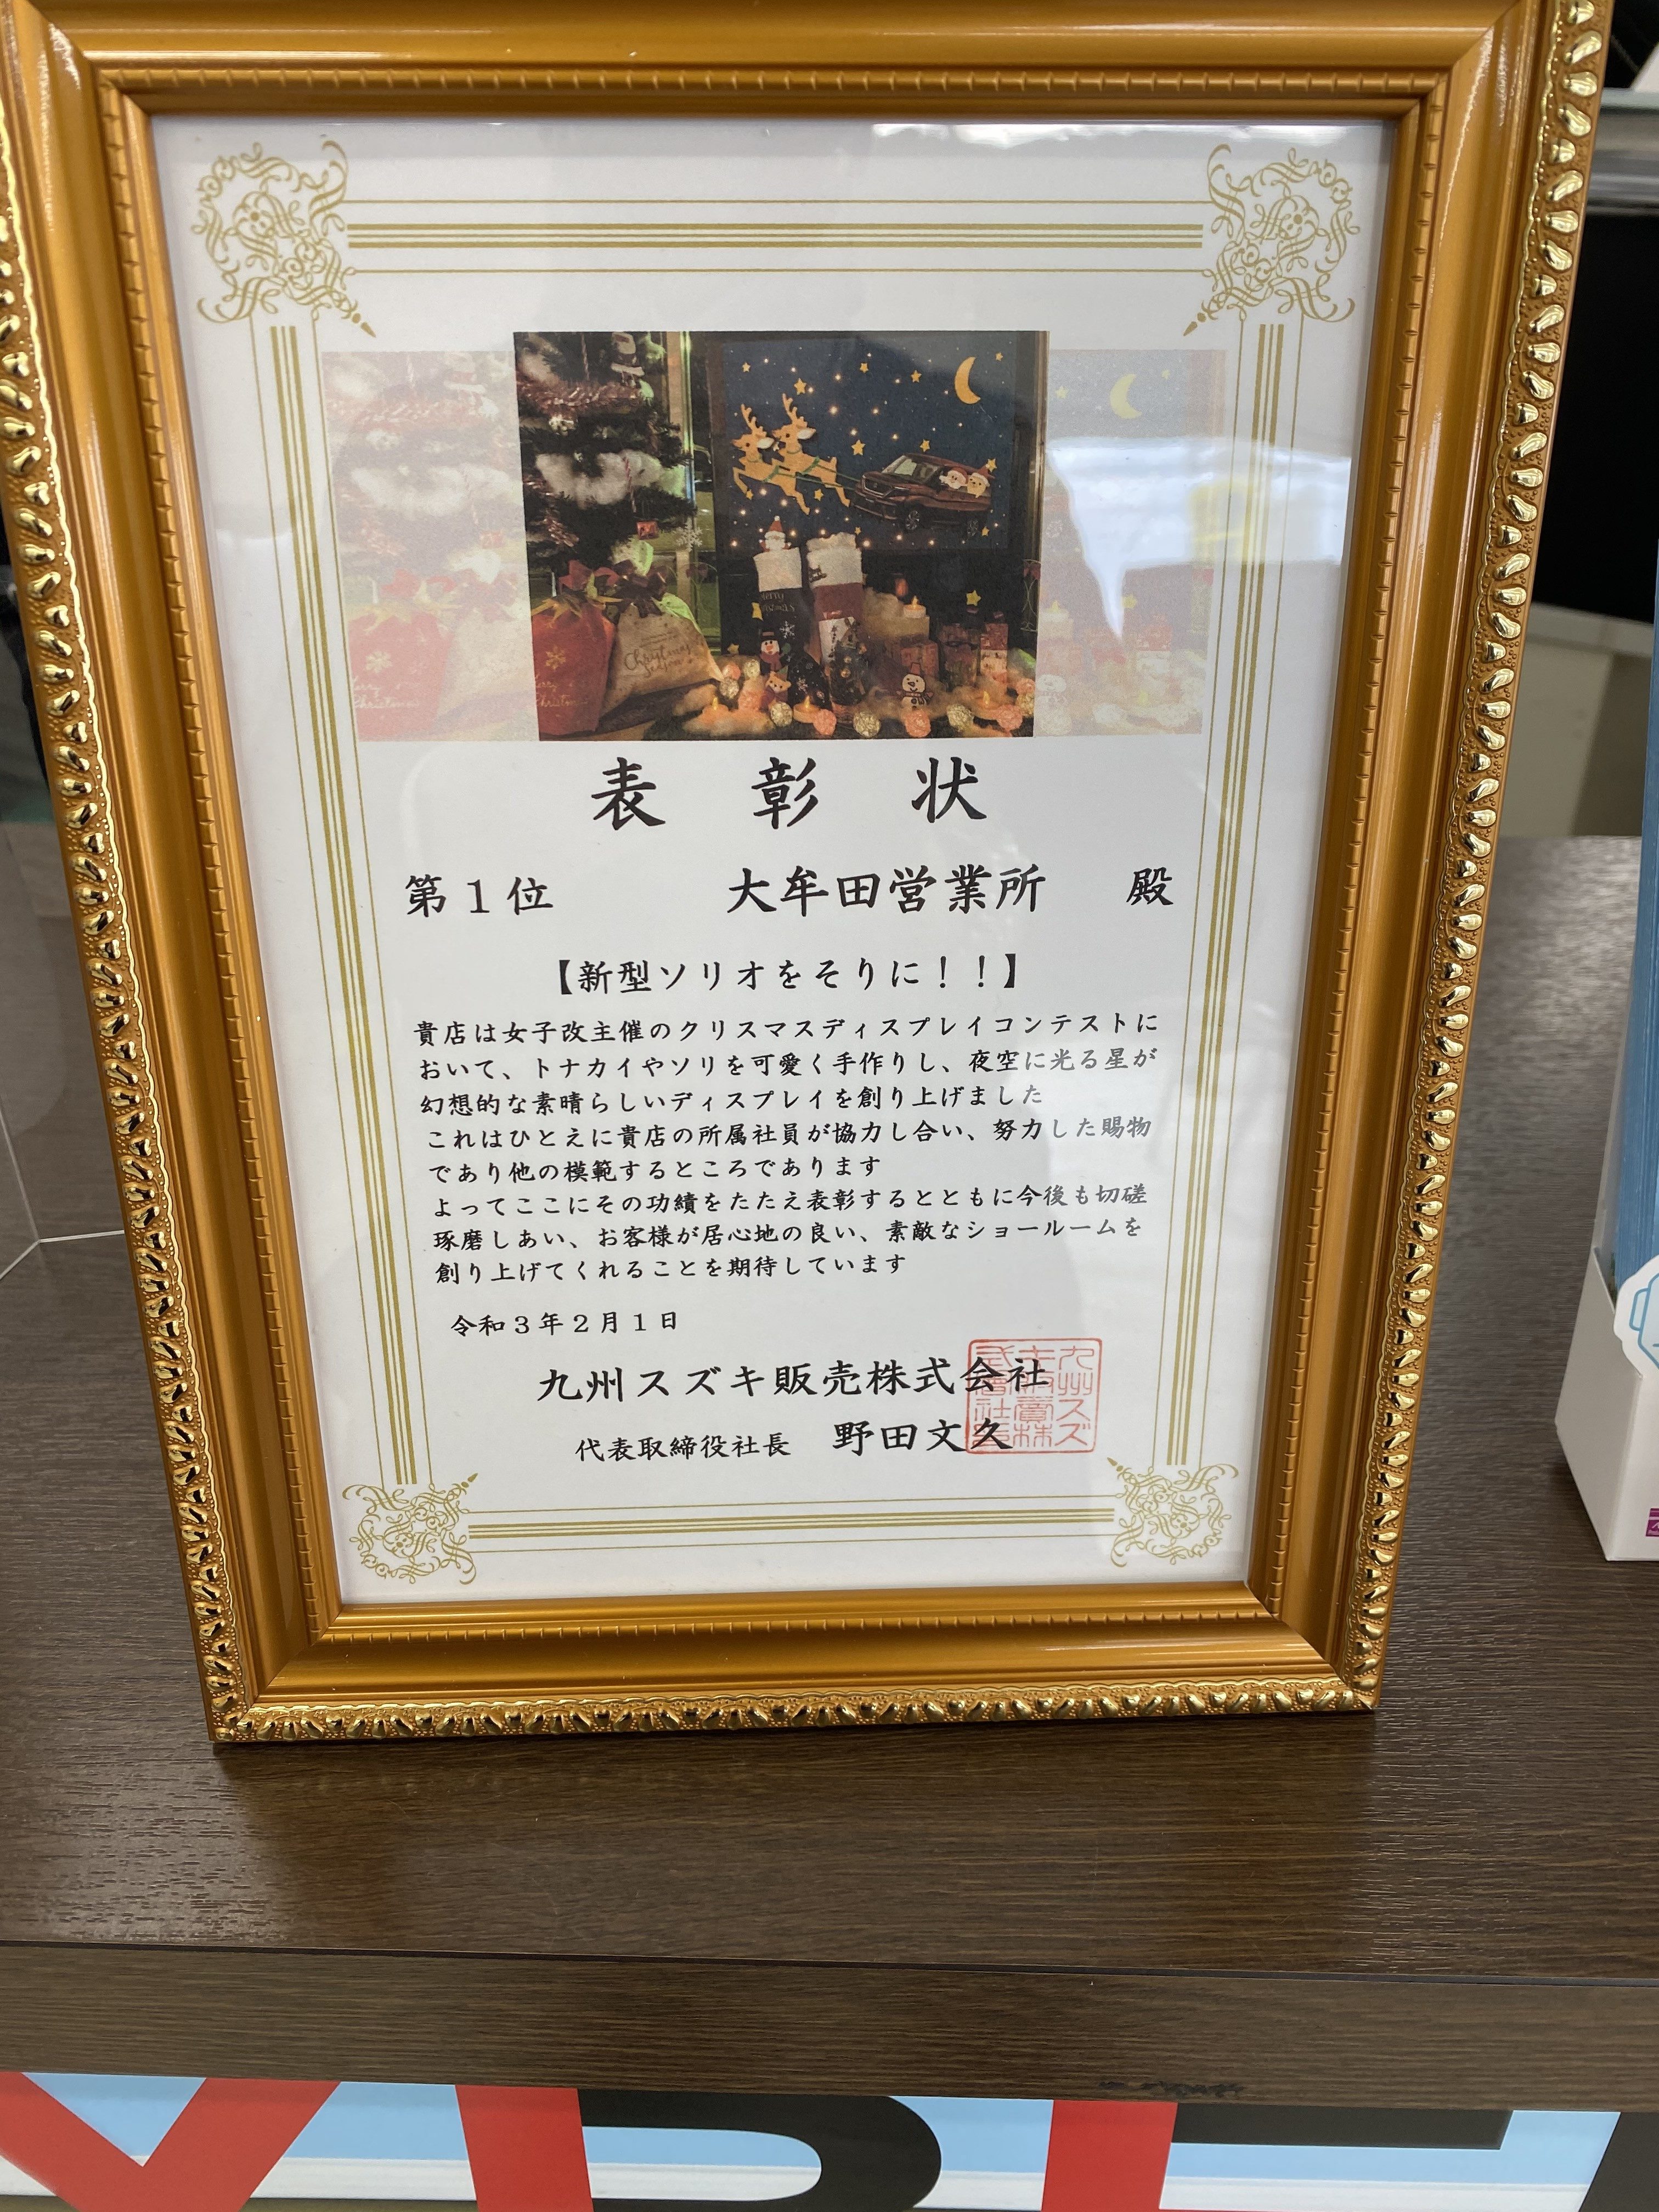 表彰状
第1位 大牟田営業所 殿
【新型ソリオをそりに！！】
貴店は女子改主催のクリスマスディスプレイコンテストに
おいて、トナカイやソリを可愛く手作りし、夜空に光る星が
幻想的な素晴らしいディスプレイを創り上げました
これはひとえに貴店の所属社員が協力し合い、努力した賜物
であり他の模範するところであります
よってここにその功績をたたえ表彰するとともに今後も切磋
琢磨しあい、お客様が居心地の良い、素敵なショールームを
創り上げてくれることを期待しています
令和3年2月1日
九州スズキ販売株式会社
代表取締役社長 野田文久